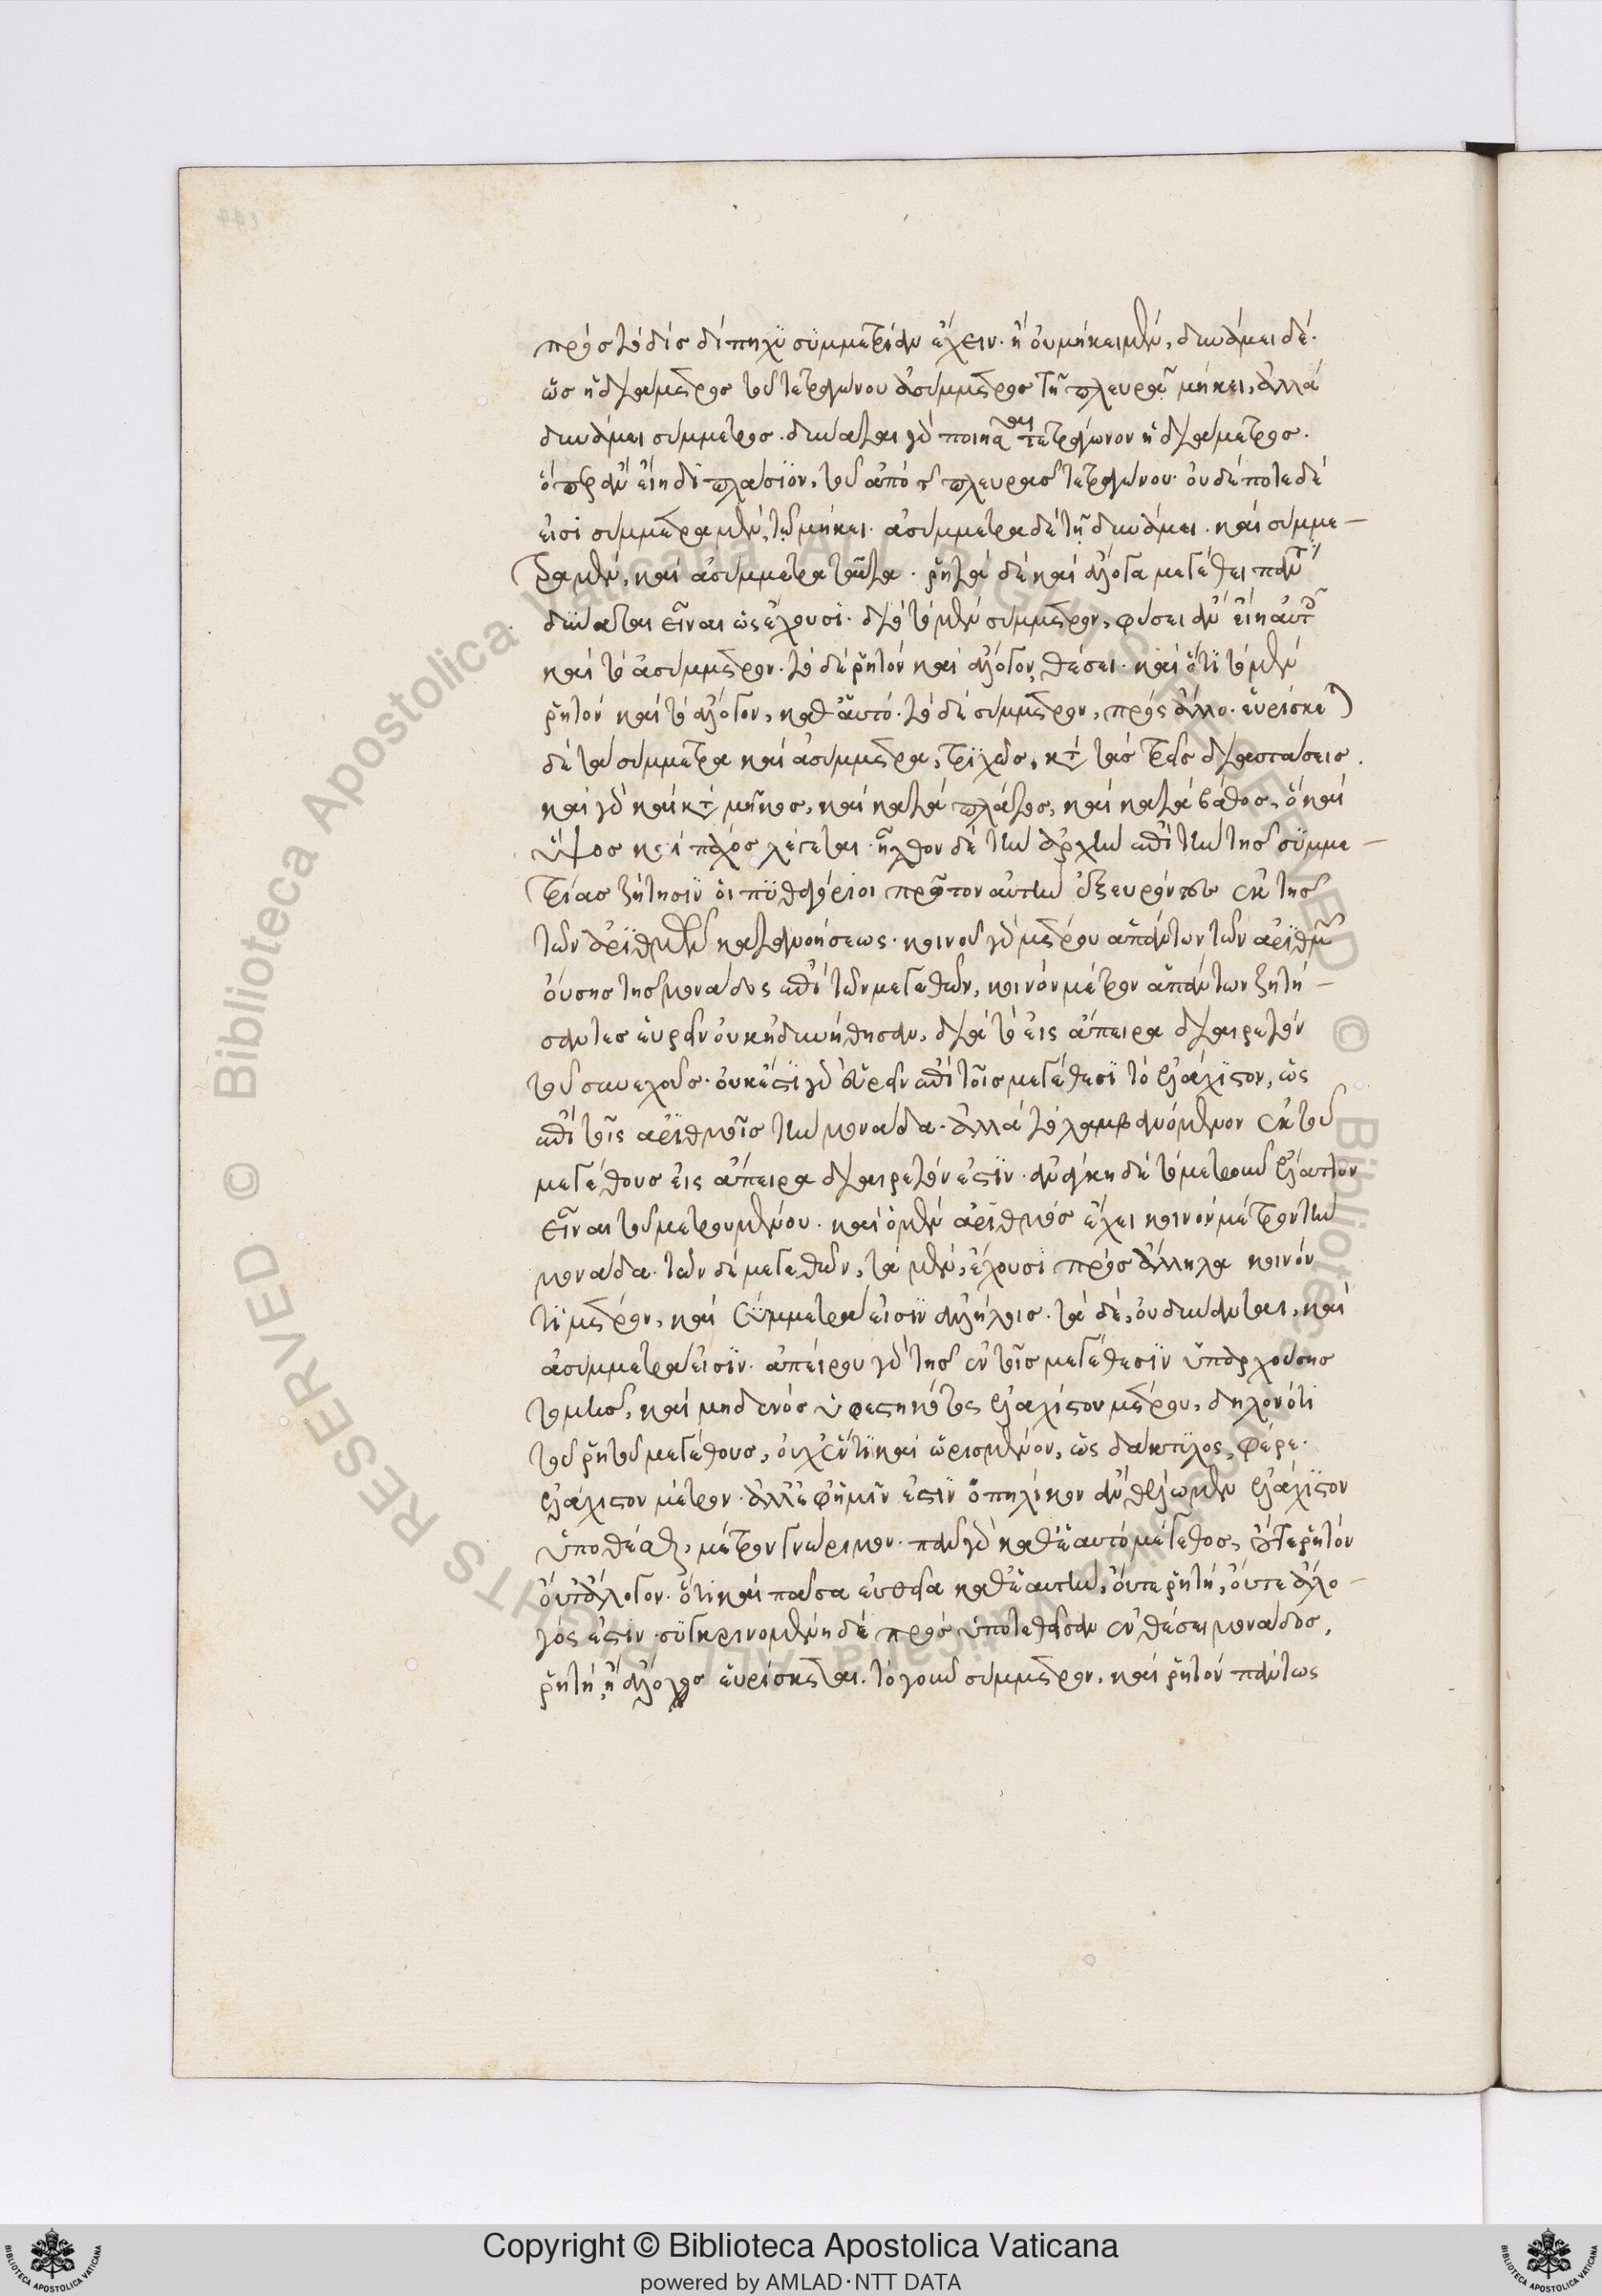 πρὸς τὸ δὶς δίπηχυ συμμετρίαν ἔχειν. ἢ οὐ μήκει μὲν, δυνάμει δέ.
ὡς ἡ διάμετρος τοῦ τετραγώνου ἀσύμμετρος τῇ πλευρᾷ μήκει, ἀλλὰ
δυνάμει σύμμετρος. δύναται γὰρ ποιῆσαι τετράγωνον ἡ διάμετρος.
ὅπερ ἂν εἴη διπλάσιον, τοῦ ἀπὸ τῆς πλευρᾶς τετραγώνου. οὐδέποτε δέ
εἰσι σύμμετρα μὲν, τῷ μήκει. ἀσύμμετρα δὲ τῇ δυνάμει. καὶ συμμε-
τρα μὲν, καὶ ἀσύμμετρα ταῦτα. ῥητὰ δὲ καὶ ἄλογα μεγέθει
δύναται εἶναι ὡς ἔχουσι. διὸ τὸ μὲν σύμμετρον, φύσει ἂν εἴη αὐτ
καὶ τὸ ἀσύμμετρον. τὸ δὲ ῥητὸν καὶ ἄλογον, θέσει. καὶ ὅτι τὸ μὲν
ῥητὸν καὶ τὸ ἄλογον, καθ' αὑτό. τὸ δὲ σύμμετρον, πρὸς ἄλλο. εὑρίσκεται
δὲ τὰ σύμμετρα καὶ ἀσύμμετρα, τριχῶς, κατὰ τὰς τρεῖς διαστάσεις.
καὶ γὰρ καὶ κατὰ μῆκος, καὶ κατὰ πλάτος, καὶ κατὰ βάθος, ὃ καὶ
ὕψος καὶ πάχος λέγεται. ἦλθον δὲ τὴν ἀρχὴν ἐπὶ τὴν τῆς συμμε-
τρίας ζήτησιν οἱ πυθαγόριοι πρῶτον αὐτὴν ἐξευρόντες ἐκ τῆς
τῶν ἀριθμῶν κατανοήσεως. κοινοῦ γὰρ μέτρου ἁπάντων τῶν ἀριθμῶν
οὔσης τῆς μονάδος ἐπὶ τῶν μεγεθῶν, κοινὸν μέτρον ἁπάντων ζητή-
σαντες εὑρεῖν οὐκ ἠδυνήθησαν, διὰ τὸ εἰς ἄπειρα διαιρετὸν
τοῦ συνεχοῦς. οὐκ ἔστι γὰρ εὑρεῖν ἐπὶ τοῖς μεγέθεσι τὸ ἐλάχιστον, ὡς
ἐπὶ τοῖς ἀριθμοῖς τὴν μονάδα. ἀλλὰ τὸ λαμβανόμενον ἐκ τοῦ
μεγέθους εἰς ἄπειρα διαιρετόν ἐστιν. ἀνάγκη δὲ τὸ μετροῦν ἔλαττον
εἶναι τοῦ μετρουμένου. καὶ ὁ μὲν ἀριθμὸς ἔχει κοινὸν μέτρον τὴν
μονάδα. τῶν δὲ μεγεθῶν, τὰ μὲν, ἔχουσι πρὸς ἄλληλα κοινόν
τι μέτρον, καὶ σύμμετρά εἰσιν ἀλλήλοις. τὰ δὲ, οὐ δύνανται, καὶ
ἀσύμμετρά εἰσιν. ἀπείρου γὰρ τῆς ἐν τοῖς μεγέθεσιν ὑπαρχούσης
τομῆς, καὶ μηδενὸς ὑφεστηκότος ἐλαχίστου μέτρου, δηλονότι
τοῦ ῥητοῦ μεγέθους, οὐχ ἕν τι καὶ ὡρισμένον, ὡς δάκτυλος, φέρε.
ἐλάχιστον μέτρον. ἀλλ' ἐφ' ἡμῖν ἐστιν ὁπηλίκον ἂν θέλωμεν ἐλάχιστον
ὑποθέσθαι, μέτρον γνώριμον. πᾶν γὰρ καθ' ἑαυτὸ μέγεθος, οὔτε ῥητόν
οὔτ' ἄλογον. ὅτι καὶ πᾶσα εὐθεῖα καθ' ἑαυτὴν, οὔτε ῥητή, οὔτε ἄλο-
γός ἐστιν. συγκρινομένη δὲ πρὸς ὑποτεθεῖσαν ἐν θέσει μονάδος,
ῥητὴ, ἢ ἄλογος εὑρίσκεται. τὸ γοῦν σύμμετρον, καὶ ῥητὸν πάντως